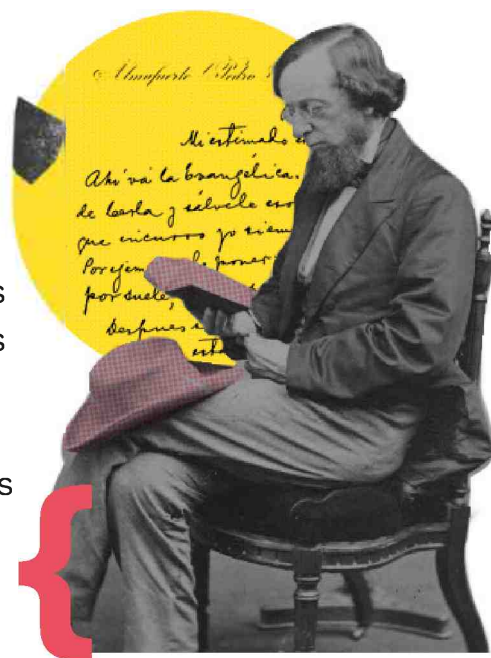 Almafuerte (Pedro
Mi estimado
Ahí vá la Evangélica.
de leerla y sálvele
que incurro yo siem
Por ejem poner
por suele,
Despues
esta
s
s
s
{